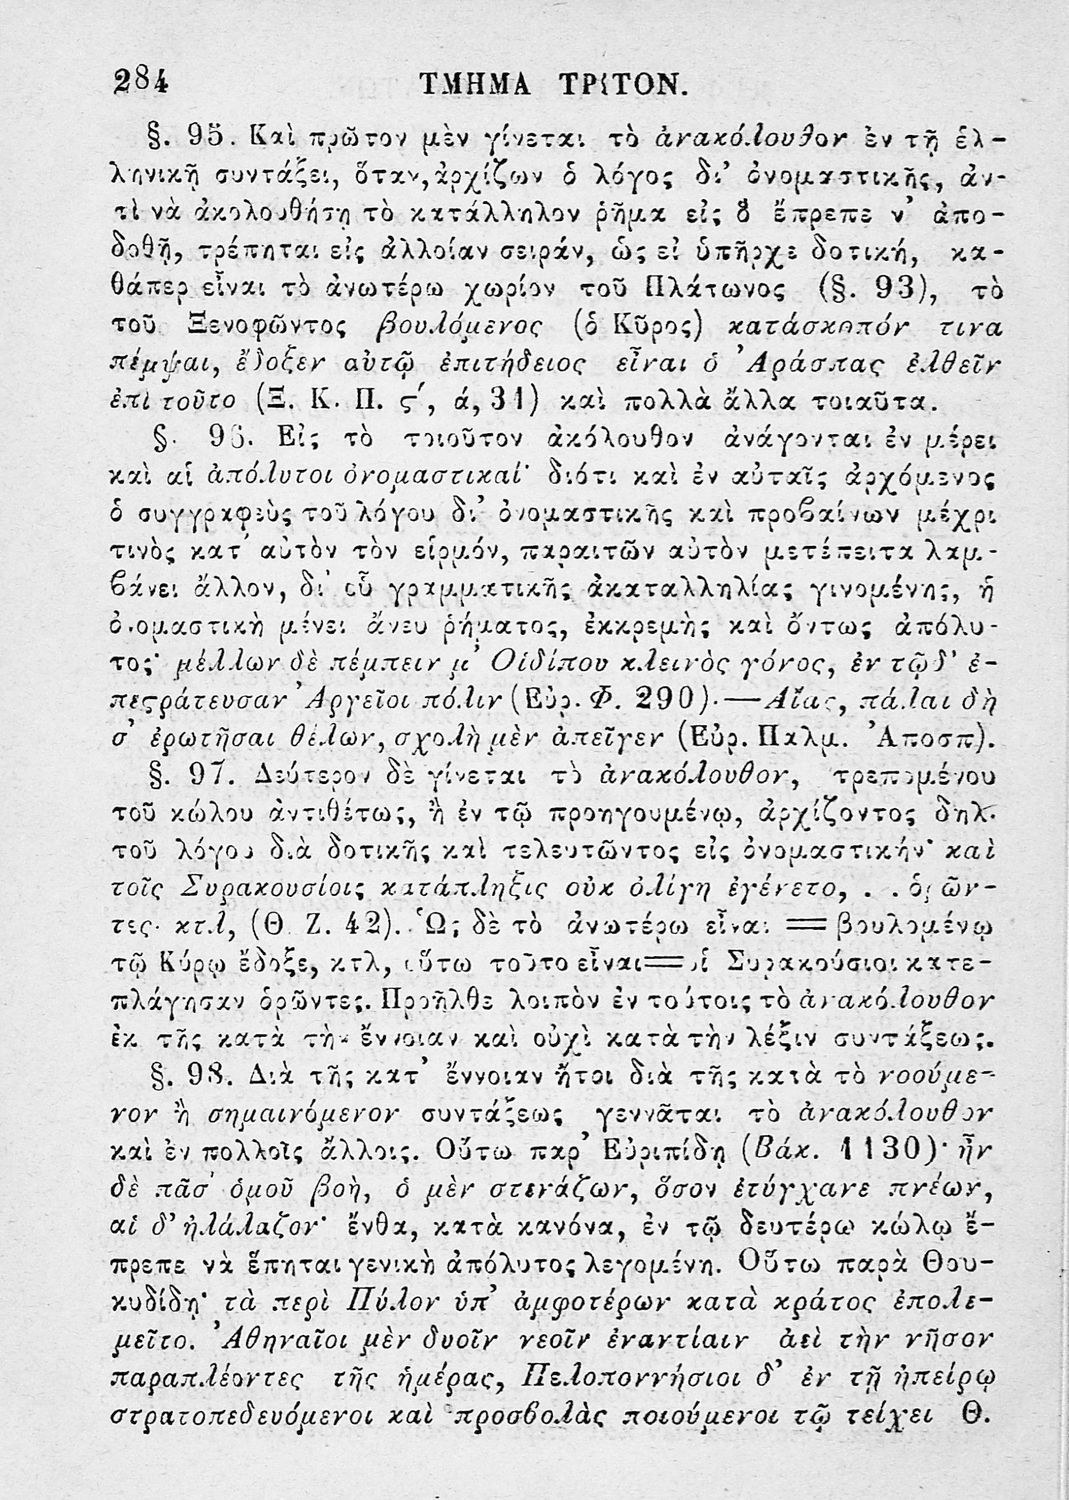 284 ΤΜΗΜΑ ΤΡΙΤΟΝ.
§. 95. Καὶ πρῶτον μὲν γίνεται τὸ ἀνακόλουθον ἐν τῇ ἑλ-
ληνικῇ συντάξει, ὅταν, ἀρχίζων ὁ λόγος δι’ ὀνομαστικῆς, ἀν-
τὶ νὰ ἀκολουθήσῃ τὸ κατάλληλον ῥῆμα εἰς ὃ ἔπρεπε ν’ ἀπο-
δοθῇ, τρέπηται εἰς ἀλλοίαν σειράν, ὡς εἰ ὑπῆρχε δοτική, κα-
θάπερ εἶναι τὸ ἀνωτέρω χωρίον τοῦ Πλάτωνος (§. 93), τὸ
τοῦ Ξενοφῶντος βουλόμενος (ὁ Κῦρος) κατάσκοπόν τινα
πέμψαι, ἔδοξεν αὐτῷ ἐπιτήδειος εἶναι ὁ Ἀράσπας ἐλθεῖν
ἐπὶ τοῦτο (Ξ. Κ. Π. ϛ´, ά, 31) καὶ πολλὰ ἄλλα τοιαῦτα.
§. 96. Εἰς τὸ τοιοῦτον ἀκόλουθον ἀνάγονται ἐν μέρει
καὶ αἱ ἀπόλυτοι ὀνομαστικαί· διότι καὶ ἐν αὐταῖς ἀρχόμενος
ὁ συγγραφεὺς τοῦ λόγου δι’ ὀνομαστικῆς καὶ προβαίνων μέχρι
τινὸς κατ’ αὐτὸν τὸν εἱρμόν, παραιτῶν αὐτὸν μετέπειτα λαμ-
βάνει ἄλλον, δι’ οὗ γραμματικῆς ἀκαταλληλίας γινομένης, ἡ
ὀνομαστικὴ μένει ἄνευ ῥήματος, ἐκκρεμὴς καὶ ὄντως ἀπόλυ-
τος· μέλλων δὲ πέμπειν μ’ Οἰδίπου κλεινὸς γόνος, ἐν τῷδ’ ἐ-
πεςράτευσαν Ἀργεῖοι πόλιν (Εὐρ. Φ. 290).—Αἴας, πάλαι δὴ
σ’ ἐρωτῆσαι θέλων, σχολὴ μὲν ἀπεῖγεν (Εὐρ. Παλμ. Ἀποσπ).
§. 97. Δεύτερον δὲ γίνεται τὸ ἀνακόλουθον, τρεπομένου
τοῦ κώλου ἀντιθέτως, ἢ ἐν τῷ προηγουμένῳ, ἀρχίζοντος δηλ.
τοῦ λόγου διὰ δοτικῆς καὶ τελευτῶντος εἰς ὀνομαστικήν· καὶ
τοῖς Συρακουσίοις κατάπληξις οὐκ ὀλίγη ἐγένετο, . . ὁρῶν-
τες· κτλ, (Θ. Ζ. 42). Ὡς δὲ τὸ ἀνωτέρω εἶναι = βουλομένῳ
τῷ Κύρῳ ἔδοξε, κτλ, οὕτω τοῦτο εἶναι = οἱ Συρακούσιοι κατε-
πλάγησαν ὁρῶντες. Προῆλθε λοιπὸν ἐν τούτοις τὸ ἀνακόλουθον
ἐκ τῆς κατὰ τὴν ἔννοιαν καὶ οὐχὶ κατὰ τὴν λέξιν συντάξεως.
§. 98. Διὰ τῆς κατ’ ἔννοιαν ἤτοι διὰ τῆς κατὰ τὸ νοούμε-
νον ἢ σημαινόμενον συντάξεως γεννᾶται τὸ ἀνακόλουθον
καὶ ἐν πολλοῖς ἄλλοις. Οὕτω παρ’ Εὐριπίδῃ (Βάκ. 1130)· ἦν
δὲ πᾶσ’ ὁμοῦ βοὴ, ὁ μὲν στενάζων, ὅσον ἐτύγχανε πνέων,
αἱ δ’ ἠλάλαζον· ἔνθα, κατὰ κανόνα, ἐν τῷ δευτέρω κώλῳ ἔ-
πρεπε νὰ ἕπηται γενικὴ ἀπόλυτος λεγομένη. Οὕτω παρὰ Θου-
κυδίδῃ· τὰ περὶ Πύλον ὑπ’ ἀμφοτέρων κατὰ κράτος ἐπολε-
μεῖτο. Ἀθηναῖοι μὲν δυοῖν νεοῖν ἐναντίαιν ἀεὶ τὴν νῆσον
παραπλέοντες τῆς ἡμέρας, Πελοποννήσιοι δ’ ἐν τῇ ἠπείρῳ
στρατοπεδευόμενοι καὶ προσβολὰς ποιούμενοι τῷ τείχει Θ.